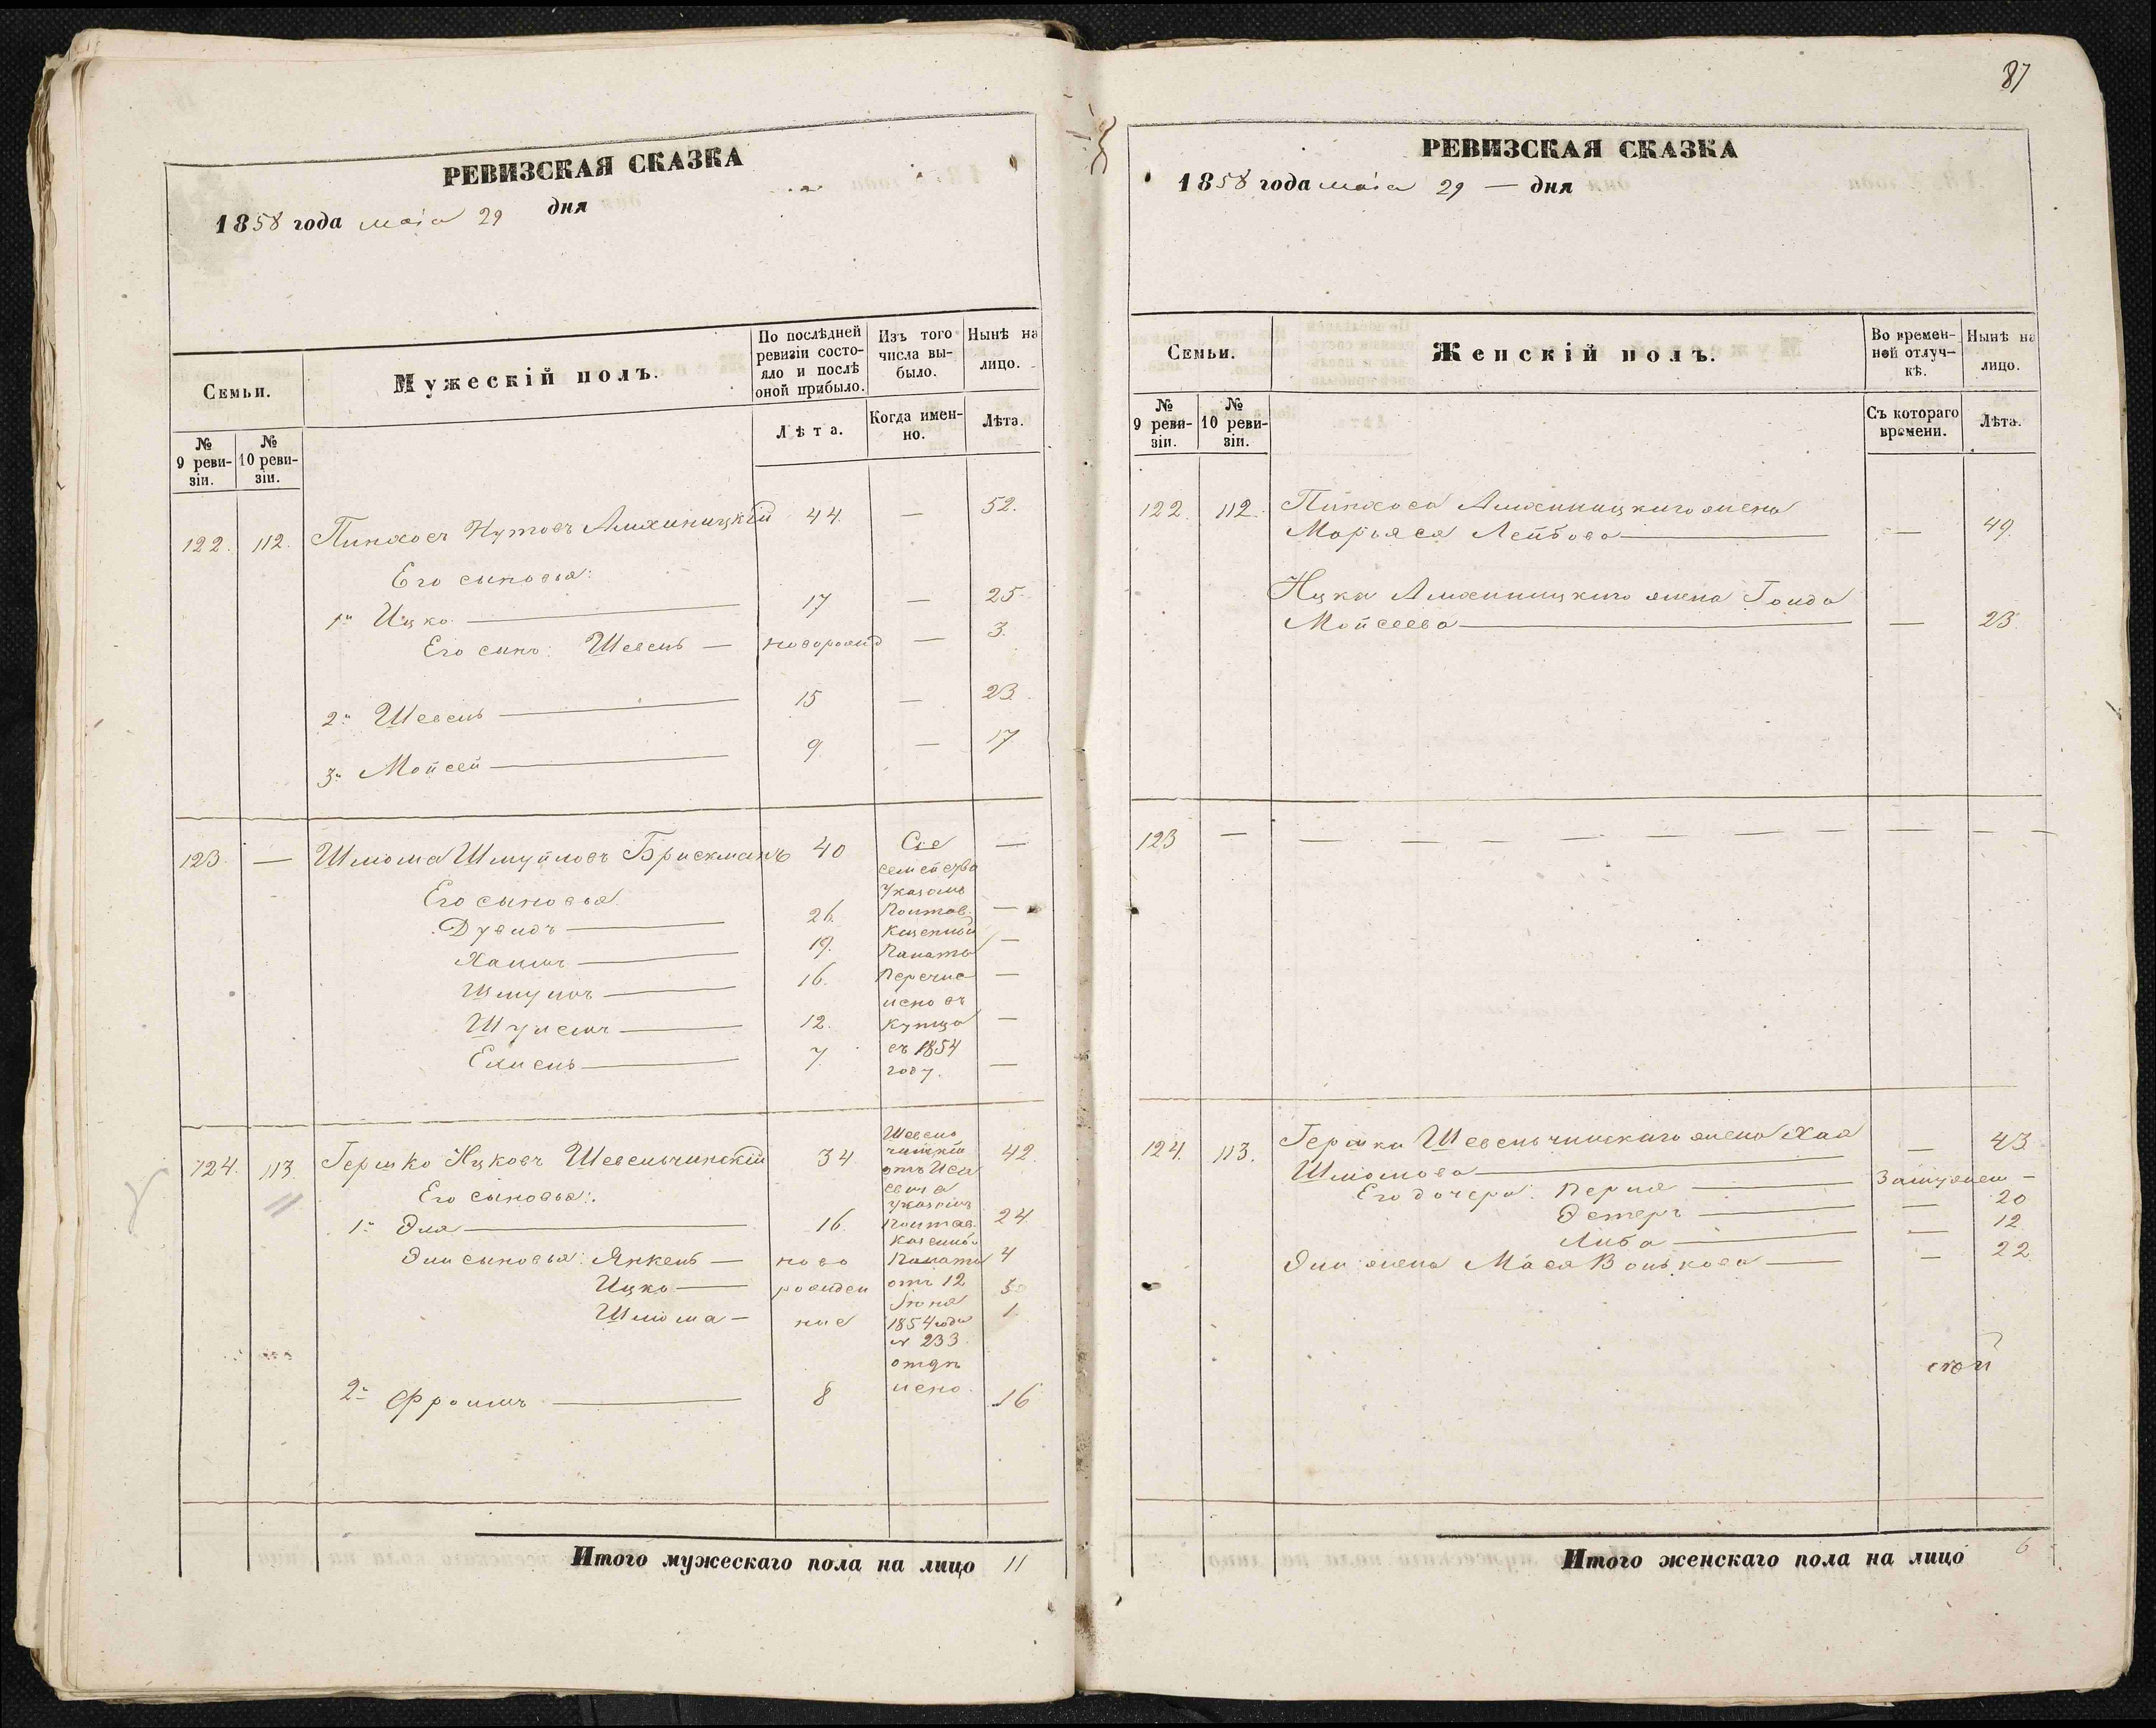 РЕВИЗСКАЯ СКАЗКА
1858 года маia 29 дня
Семьи.
Мужескій полъ.
По послѣдней ревизіи состояло и послѣ оной прибыло.
Изъ того числа выбыло.
Нынѣ на лицо.
№ 9 ревизіи.
№ 10 ревизіи.
Лѣта.
Когда именно.
Лѣта.
122. 112. Пинхосъ Нутовъ 44. — 52.
Его сыновья:
1й Ицко — 17 — 25.
Его сынъ: Шевель — новорожд — 3.
2й Шевель — 15 — 23.
3й Мойсей — 9 — 17
123. — Шлиома Шмуйловъ Брискманъ 40 Сіе —
семейство
Указомъ
Его сыновья
Полтав.
Дувидъ — 26. —
Казенной
Хаимъ — 19. Палаты —
Шмулъ — 16. перечис —
лено въ
12. купцы —
7. съ 1854 —
году.
124. 113. Гершко Ицковъ Шевельчинскій 34 42.
Его сыновья:
1й Эля — 16. 24
Указомъ
Полтав.
Казенной
Эли сыновья: Янкель — ново Палаты 4
Ицко — рожден отъ 12 3
Шлиома — ные Іюня 1.
1854 года
№ 233.
2й Фроимъ — 8 16
Итого мужескаго пола на лицо 11
87
РЕВИЗСКАЯ СКАЗКА
1858 года маia 29 — дня
Семьи.
Женскій полъ.
Во временной отлучкѣ.
Нынѣ на лицо.
№ 9 ревизіи.
№ 10 ревизіи.
Съ котораго времени.
Лѣта.
122. 112. Пинхоса жена
Марьяся Лейбова — — 49.
Ицки жена Гольда
Мойсеева — — 23.
123 — — — — — — — — — —
124. 113. Гершки Шевельчинскаго жена Хая — 43.
Шлиомова —
Его дочери: Перля — Замужем —
Эстеръ — — 20
Либа — — 12.
Эли жена Мася Волькова — — 22.
Итого женскаго пола на лицо 6